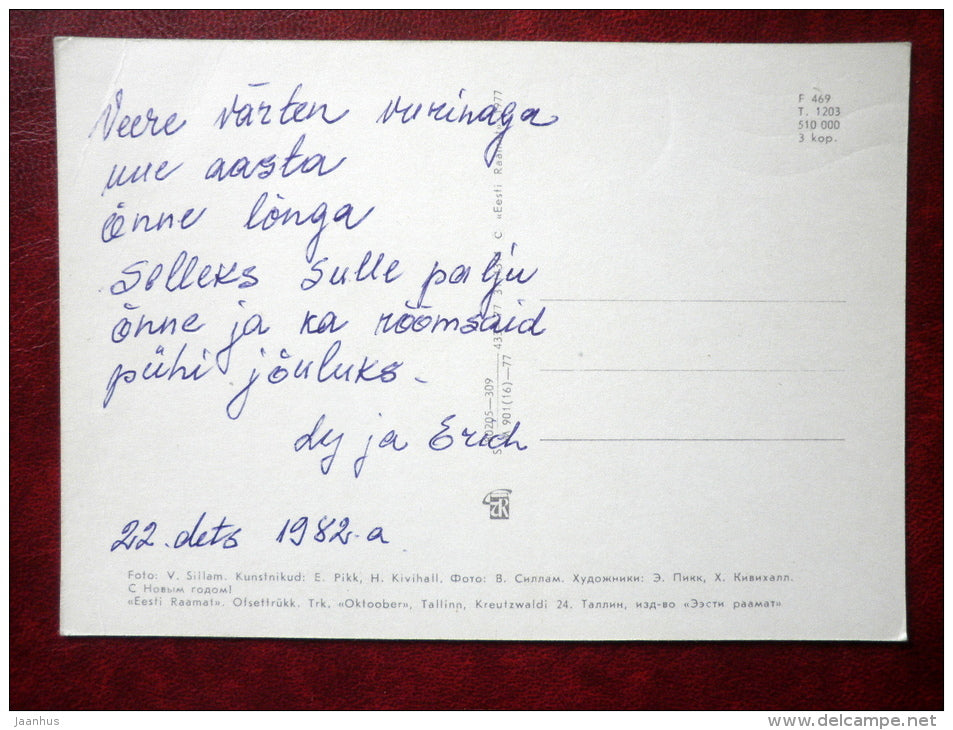 Veere värten vurinaga
uue aasta
õnne lõnga
Selleks Sulle palju
õnne ja ka rõõmsaid
pühi jõuluks.
Ly ja Erich
22. dets 1982.a
F 469
T. 1203
510 000
3 kop.
C «Eesti
901(16)—77
Foto: V. Sillam. Kunstnikud: E. Pikk, H. Kivihall. Фото: В. Силлам. Художники: Э. Пикк, Х. Кивихалл.
С Новым годом!
«Eesti Raamat». Ofsettrükk. Trk. «Oktoober», Tallinn, Kreutzwaldi 24. Таллин, изд-во «Ээсти раамат»
jaanhus
www.delcampe.net